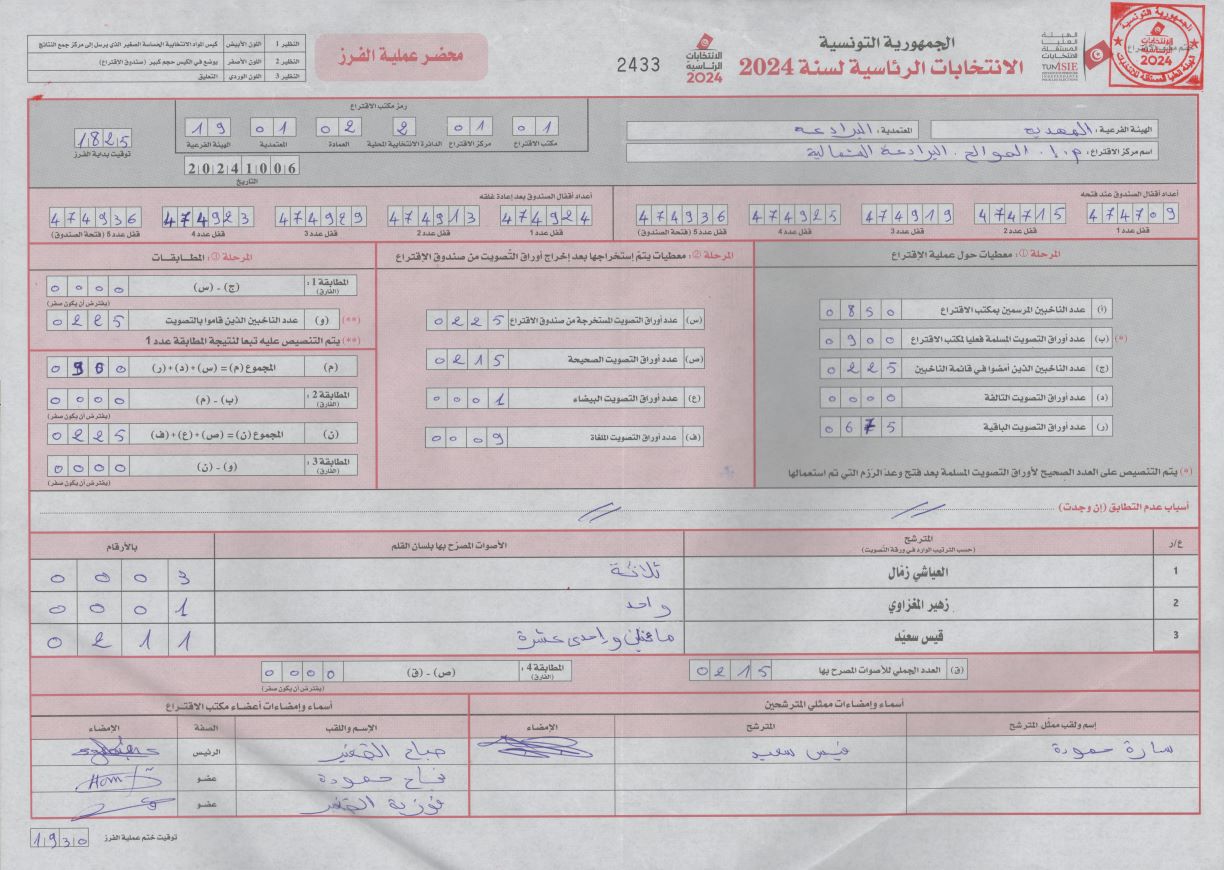 الجمهورية التونسية
الانتخابات الرئاسية لسنة 2024
الهيئة
العليا
المستقلة
للانتخابات
TUNISIE
الانتخابات
الرئاسية
2024
2433
محضر عملية الفرز
النظير 1 اللون الأبيض كيس المواد الانتخابية الحساسة الصغير الذي يرسل إلى مركز جمع النتائج
النظير 2 اللون الأصفر يوضع في الكيس حجم كبير (صندوق الاقتراع)
النظير 3 اللون الوردي التعليق
الجمهورية التونسية
الانتخابات
الرئاسية
2024
الهيئة الفرعية : المهدية
المعتمدية : البرادعة
اسم مركز الاقتراع : م.إ. الموالح. البرادعة الشمالية
رمز مكتب الاقتراع
01 01 2 02 01 19
مكتب الاقتراع مركز الاقتراع الدائرة الانتخابية المحلية العمادة المعتمدية الهيئة الفرعية
20241006
التاريخ
1825
توقيت بداية الفرز
أعداد أقفال الصندوق عند فتحه
474709 474715 474919 474925 474936
قفل عدد 1 قفل عدد 2 قفل عدد 3 قفل عدد 4 قفل عدد 5 (فتحة الصندوق)
أعداد أقفال الصندوق بعد إعادة غلقه
474924 474913 474929 474923 474936
قفل عدد 1 قفل عدد 2 قفل عدد 3 قفل عدد 4 قفل عدد 5 (فتحة الصندوق)
المرحلة ①: معطيات حول عملية الاقتراع
(أ) عدد الناخبين المرسمين بمكتب الاقتراع 0850
(*) (ب) عدد أوراق التصويت المسلمة فعليا لمكتب الاقتراع 0900
(ج) عدد الناخبين الذين أمضوا في قائمة الناخبين 0225
(د) عدد أوراق التصويت التالفة 0000
(ر) عدد أوراق التصويت الباقية 0675
(*) يتم التنصيص على العدد الصحيح لأوراق التصويت المسلمة بعد فتح وعد الرزم التي تم استعمالها
المرحلة ②: معطيات يتم إستخراجها بعد إخراج أوراق التصويت من صندوق الإقتراع
(س) عدد أوراق التصويت المستخرجة من صندوق الاقتراع 0225
(ص) عدد أوراق التصويت الصحيحة 0215
(ع) عدد أوراق التصويت البيضاء 0001
(ف) عدد أوراق التصويت الملغاة 0009
المرحلة ③: المطابقات
المطابقة 1 : (الفارق) (ج) - (س) 0000
(يفترض أن يكون صفر)
(**) (و) عدد الناخبين الذين قاموا بالتصويت 0225
(**) يتم التنصيص عليه تبعا لنتيجة المطابقة عدد 1
(م) المجموع (م) = (س) + (د) + (ر) 0900
المطابقة 2 : (الفارق) (ب) - (م) 0000
(يفترض أن يكون صفر)
(ن) المجموع (ن) = (ص) + (ع) + (ف) 0225
المطابقة 3 : (الفارق) (و) - (ن) 0000
(يفترض أن يكون صفر)
أسباب عدم التطابق (إن وجدت)
ع/ر المترشح الأصوات المصرّح بها بلسان القلم بالأرقام
(حسب الترتيب الوارد في ورقة التصويت)
1 العياشي زمّال ثلاثة 0003
2 زهير المغزاوي واحد 0001
3 قيس سعيّد مائتان واحدى عشرة 0211
(ق) العدد الجملي للأصوات المصرح بها 0215
المطابقة 4 : (الفارق) (ص) - (ق) 0000
(يفترض أن يكون صفر)
أسماء وإمضاءات ممثلي المترشحين
إسم ولقب ممثّل المترشح المترشح الإمضاء
سارة حمودة قيس سعيد
أسماء وإمضاءات أعضاء مكتب الاقتراع
الإسم واللقب الصفة الإمضاء
صباح الصغير الرئيس
نجاح حمودة عضو
فوزية الصغير عضو
توقيت ختم عملية الفرز 1930